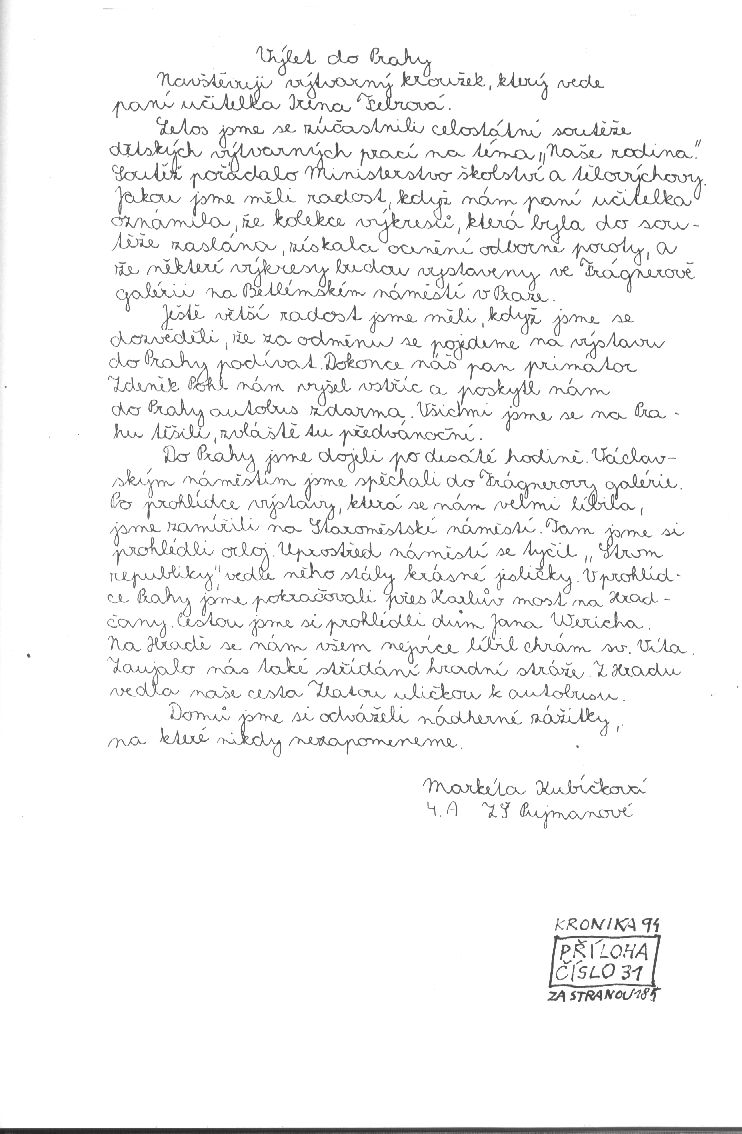 Výlet do Prahy
Navštěvuji výtvarný kroužek, který vede
paní učitelka Irena Febrová.
Letos jsme se zúčastnili celostátní soutěže
dětských výtvarných prací na téma „Naše rodina."
Soutěž pořádalo Ministerstvo školství a tělovýchovy.
Jakou jsme měli radost, když nám paní učitelka
oznámila, že kolekce výkresů, která byla do sou-
těže zaslána, získala ocenění odborné poroty, a
že některé výkresy budou vystaveny ve Frágnerově
galérii na Betlémském náměstí v Praze.
Ještě větší radost jsme měli, když jsme se
dozvěděli, že za odměnu se pojedeme na výstavu
do Prahy podívat. Dokonce náš pan primátor
Zdeněk Pohl nám vyšel vstříc a poskytl nám
do Prahy autobus zdarma. Všichni jsme se na Pra-
hu těšili, zvláště tu předvánoční.
Do Prahy jsme dojeli po desáté hodině. Václav-
ským náměstím jsme spěchali do Frágnerovy galérie.
Po prohlídce výstavy, která se nám velmi líbila,
jsme zamířili na Staroměstské náměstí. Tam jsme si
prohlédli orloj. Uprostřed náměstí se tyčil „Strom
republiky", vedle něho stály krásné jesličky. V prohlíd-
ce Prahy jsme pokračovali přes Karlův most na Hrad-
čany. Cestou jsme si prohlédli dům Jana Wericha.
Na Hradě se nám všem nejvíce líbil chrám sv. Víta.
Zaujalo nás také střídání hradní stráže. Z Hradu
vedla naše cesta Zlatou uličkou k autobusu.
Domů jsme si odváželi nádherné zážitky,
na které nikdy nezapomeneme.
Markéta Kubíčková
4. A ZŠ Rujmanové
KRONIKA 94
PŘÍLOHA
ČÍSLO 31
ZA STRANOU 185